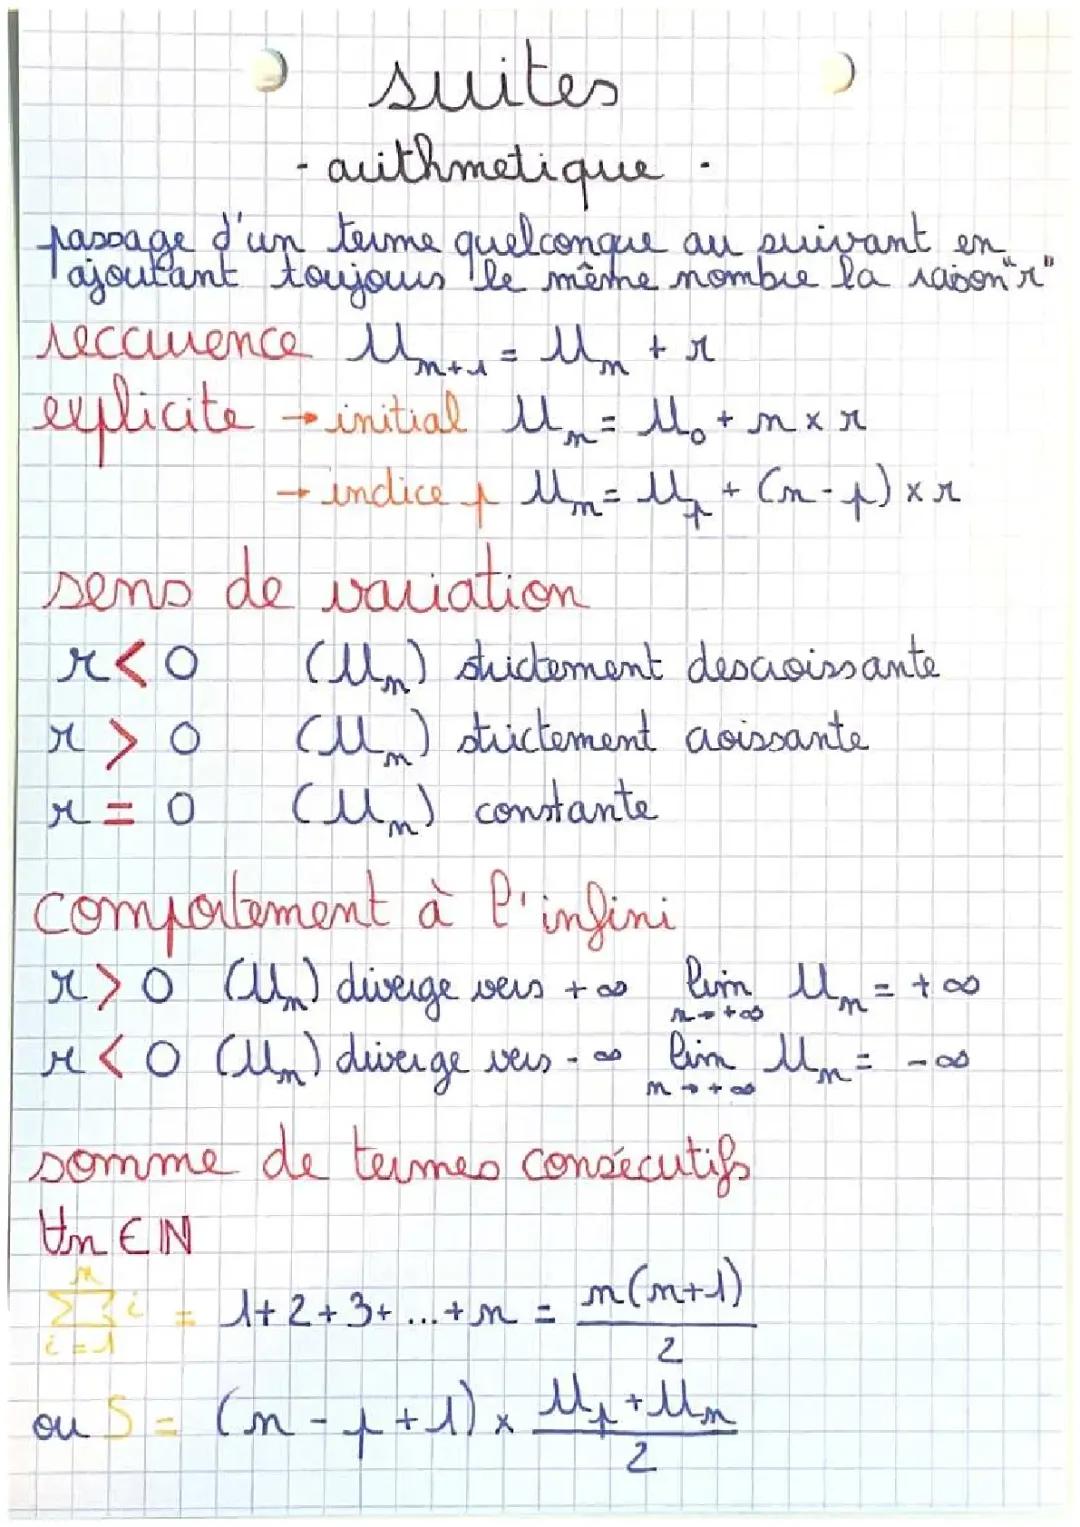 suites
- arithmetique -
passage d'un terme quelconque au suivant en
ajoutant toujours le même nombre la raison "r"
reccurence Un+1 = Un + r
explicite → initial Un = U0 + n × r
→ indice p Un = Up + (n - p) × r
sens de variation
r < 0 (Un) strictement descroissante
r > 0 (Un) strictement croissante
r = 0 (Un) constante
comportement à l'infini
r > 0 (Un) diverge vers + ∞ lim n→+∞ Un = + ∞
r < 0 (Un) diverge vers - ∞ lim n→+∞ Un = - ∞
somme de termes consécutifs
∀n ∈ ℕ
n∑i=1 i = 1 + 2 + 3 + ... + n = n(n+1)/2
ou S = (n - p + 1) × Up + Un/2